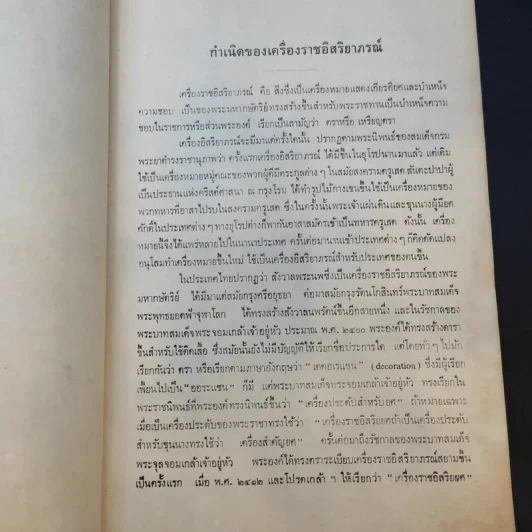 กำเนิดของเครื่องราชอิสริยาภรณ์
เครื่องราชอิสริยาภรณ์ คือ สิ่งซึ่งเป็นเครื่องหมายแสดงเกียรติยศและบำเหน็จ
ความชอบ เป็นของพระมหากษัตริย์ทรงสร้างขึ้นสำหรับพระราชทานเป็นบำเหน็จความ
ชอบในราชการหรือส่วนพระองค์ เรียกเป็นสามัญว่า ตราหรือ เหรียญตรา
เครื่องอิสริยาภรณ์จะมีมาแต่ครั้งใดนั้น ปรากฏตามพระนิพนธ์ของสมเด็จกรม
พระยาดำรงราชานุภาพว่า ครั้งแรกเครื่องอิสริยาภรณ์ ได้มีขึ้นในยุโรปนานมาแล้ว แต่เดิม
ใช้เป็นเครื่องหมายหมู่คณะของพวกผู้ดีมีตระกูลต่าง ๆ ในสมัยสงครามครูเสด สันตะปาปาผู้
เป็นประธานแห่งคริสต์ศาสนา ณ กรุงโรม ได้ทำรูปไม้กางเขนขึ้นใช้เป็นเครื่องหมายของ
พวกทหารที่อาสาไปรบในสงครามครูเสด ซึ่งในครั้งนั้นพระเจ้าแผ่นดินและขุนนางผู้มียศ
ศักดิ์ในประเทศต่าง ๆ ทางยุโรปต่างก็พากันอาสาสมัครเข้าเป็นทหารครูเสด ดังนั้น เครื่อง
หมายนี้จึงได้แพร่หลายไปในนานาประเทศ ครั้นต่อมานานเข้าประเทศต่าง ๆ ก็คิดดัดแปลง
อนุโลมทำเครื่องหมายขึ้นใหม่ ใช้เป็นเครื่องอิสริยาภรณ์สำหรับประเทศของตนขึ้น
ในประเทศไทยปรากฏว่า สังวาลพระนพซึ่งเป็นเครื่องราชอิสริยาภรณ์ของพระ
มหากษัตริย์ ได้มีมาแต่สมัยกรุงศรีอยุธยา ต่อมาสมัยกรุงรัตนโกสินทร์พระบาทสมเด็จ
พระพุทธยอดฟ้าจุฬาโลก ได้ทรงสร้างสังวาลนพรัตน์ขึ้นอีกสายหนึ่ง และในรัชกาลของ
พระบาทสมเด็จพระจอมเกล้าเจ้าอยู่หัว ประมาณ พ.ศ. ๒๔๐๐ พระองค์ได้ทรงสร้างดารา
ขึ้นสำหรับใช้ติดเสื้อ ซึ่งสมัยนั้นยังไม่มีบัญญัติให้เรียกชื่อประการใด แต่โดยทั่ว ๆ ไปมัก
เรียกกันว่า ตรา หรือเรียกตามภาษาอังกฤษว่า “ เดคอเรแชน ” (decoration) ซึ่งมีผู้เรียก
เพี้ยนไปเป็น “ออระแชน” ก็มี แต่พระบาทสมเด็จพระจอมเกล้าเจ้าอยู่หัว ทรงเรียกใน
พระราชนิพนธ์ที่พระองค์ทรงนิพนธ์ขึ้นว่า “เครื่องประดับสำหรับยศ” ถ้าหมายเฉพาะ
เมื่อเป็นเครื่องประดับของพระราชาทรงใช้ว่า “เครื่องราชอิสริยยศถ้าเป็นเครื่องประดับ
สำหรับขุนนางทรงใช้ว่า เครื่องสำคัญยศ” ครั้นต่อมาถึงรัชกาลของพระบาทสมเด็จ
พระจุลจอมเกล้าเจ้าอยู่หัว พระองค์ได้ทรงตราระเบียบเครื่องราชอิสริยาภรณ์สยามขึ้น
เป็นครั้งแรก เมื่อ พ.ศ. ๒๔๑๒ และโปรดเกล้า ฯ ให้เรียกว่า “เครื่องราชอิสริยยศ”